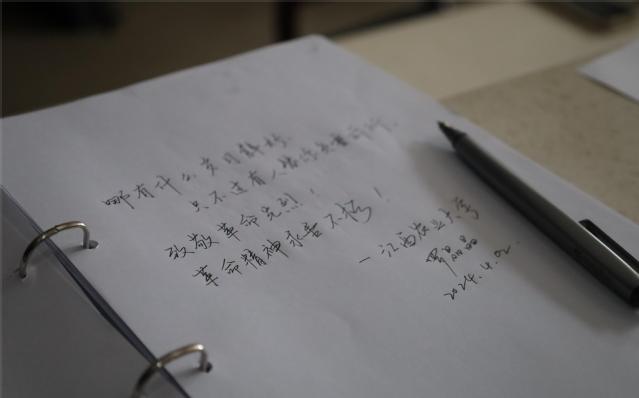 哪有什么岁月静好，
只不过有人替你负重前行。
致敬革命先烈！
革命精神永垂不朽！
—江西农业大学
罗晶晶
2024.4.02.